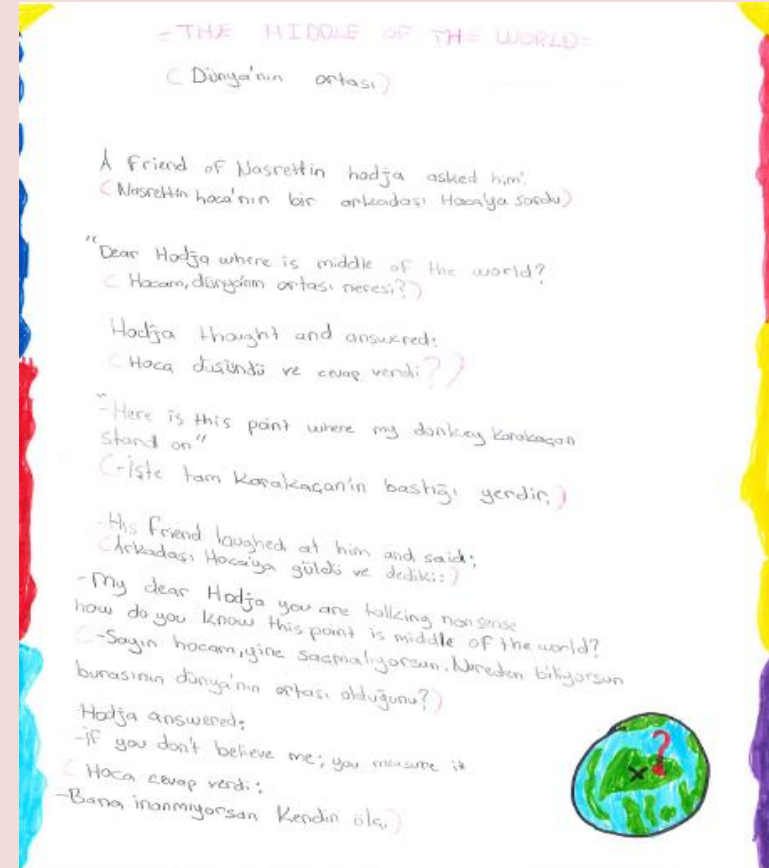 =THE MIDDLE OF THE WORLD=
(Dünya'nın ortası)
A friend of Nasrettin hodja asked him:
(Nasrettin hoca'nın bir arkadaşı Hoca'ya sordu)
"Dear Hodja where is middle of the world?
(Hocam, dünyanın ortası neresi?)
Hodja thought and answered:
(Hoca düşündü ve cevap verdi?)
"-Here is this point where my donkey karakaçan
stand on"
(-işte tam karakaçan'ın bastığı yerdir.)
-His friend laughed at him and said:
(Arkadaşı Hoca'ya güldü ve dediki:)
-My dear Hodja you are talking non sense
how do you know this point is middle of the world?
(-Sayın hocam, yine saçmalıyorsun. Nereden biliyorsun
burasının dünya'nın ortası olduğunu?)
Hodja answered:
-if you don't believe me; you measure it
(Hoca cevap verdi:
-Bana inanmıyorsan kendin ölç.)
?
x